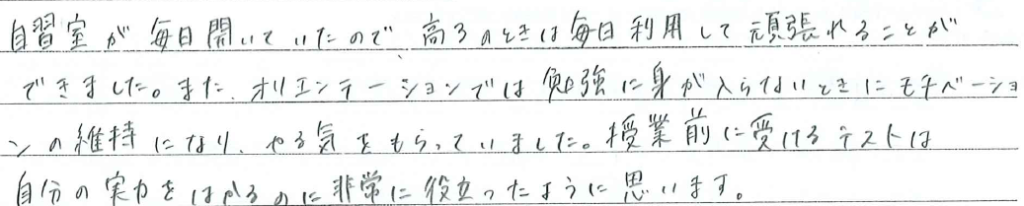 自習室が毎日開いていたので、高3のときは毎日利用して頑張れることが
できました。また、オリエンテーションでは勉強に身が入らないときにモチベーショ
ンの維持になり、やる気をもらっていました。授業前に受けるテストは
自分の実力をはかるのに非常に役立ったように思います。